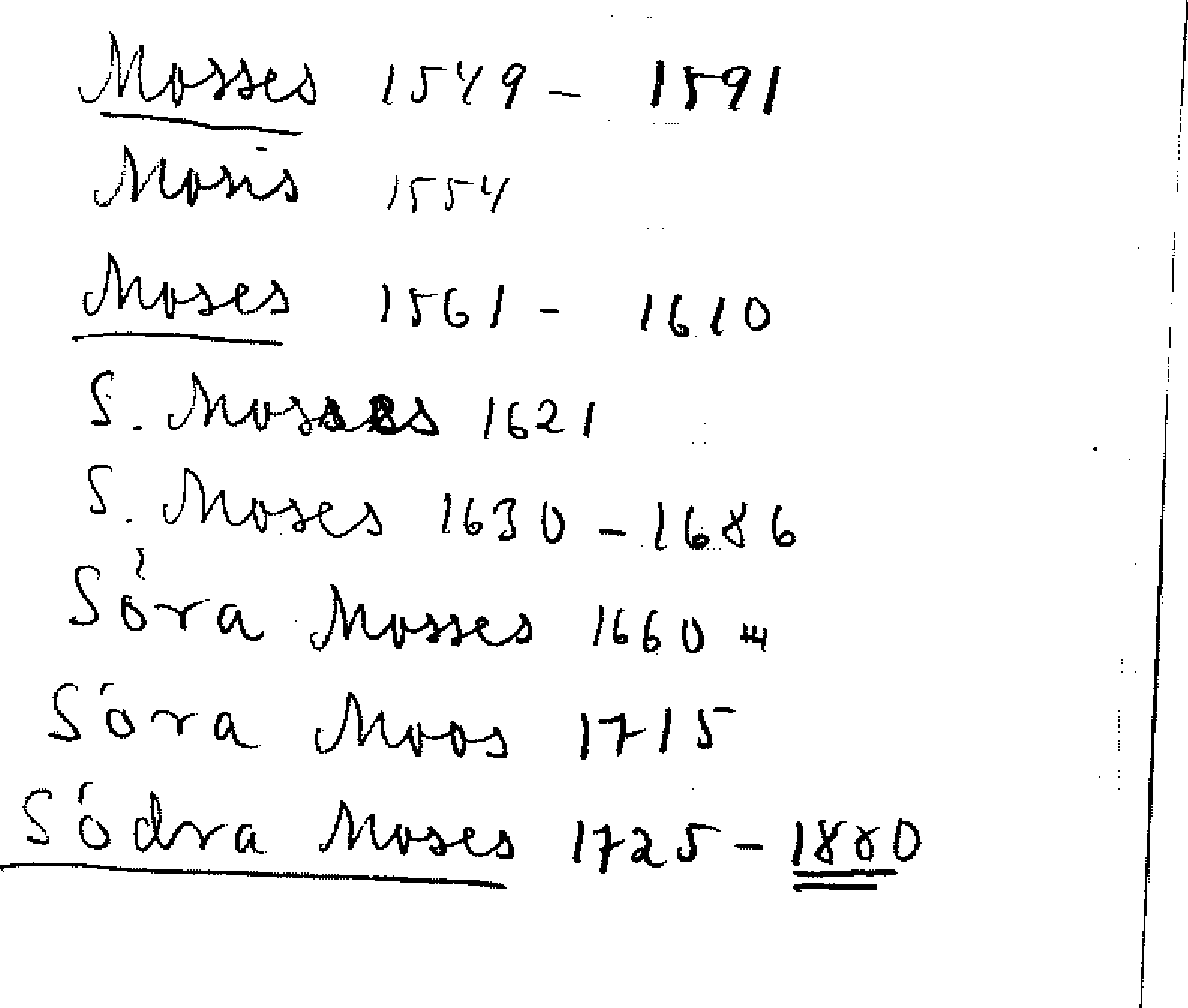 Mosses 1549 - 1591
Mosis 1554
Moses 1561 - 1610
S. Mosses 1621
S. Moses 1630 - 1686
Söra Mosses 1660
Söra Moos 1715
Södra Moses 1725 - 1880